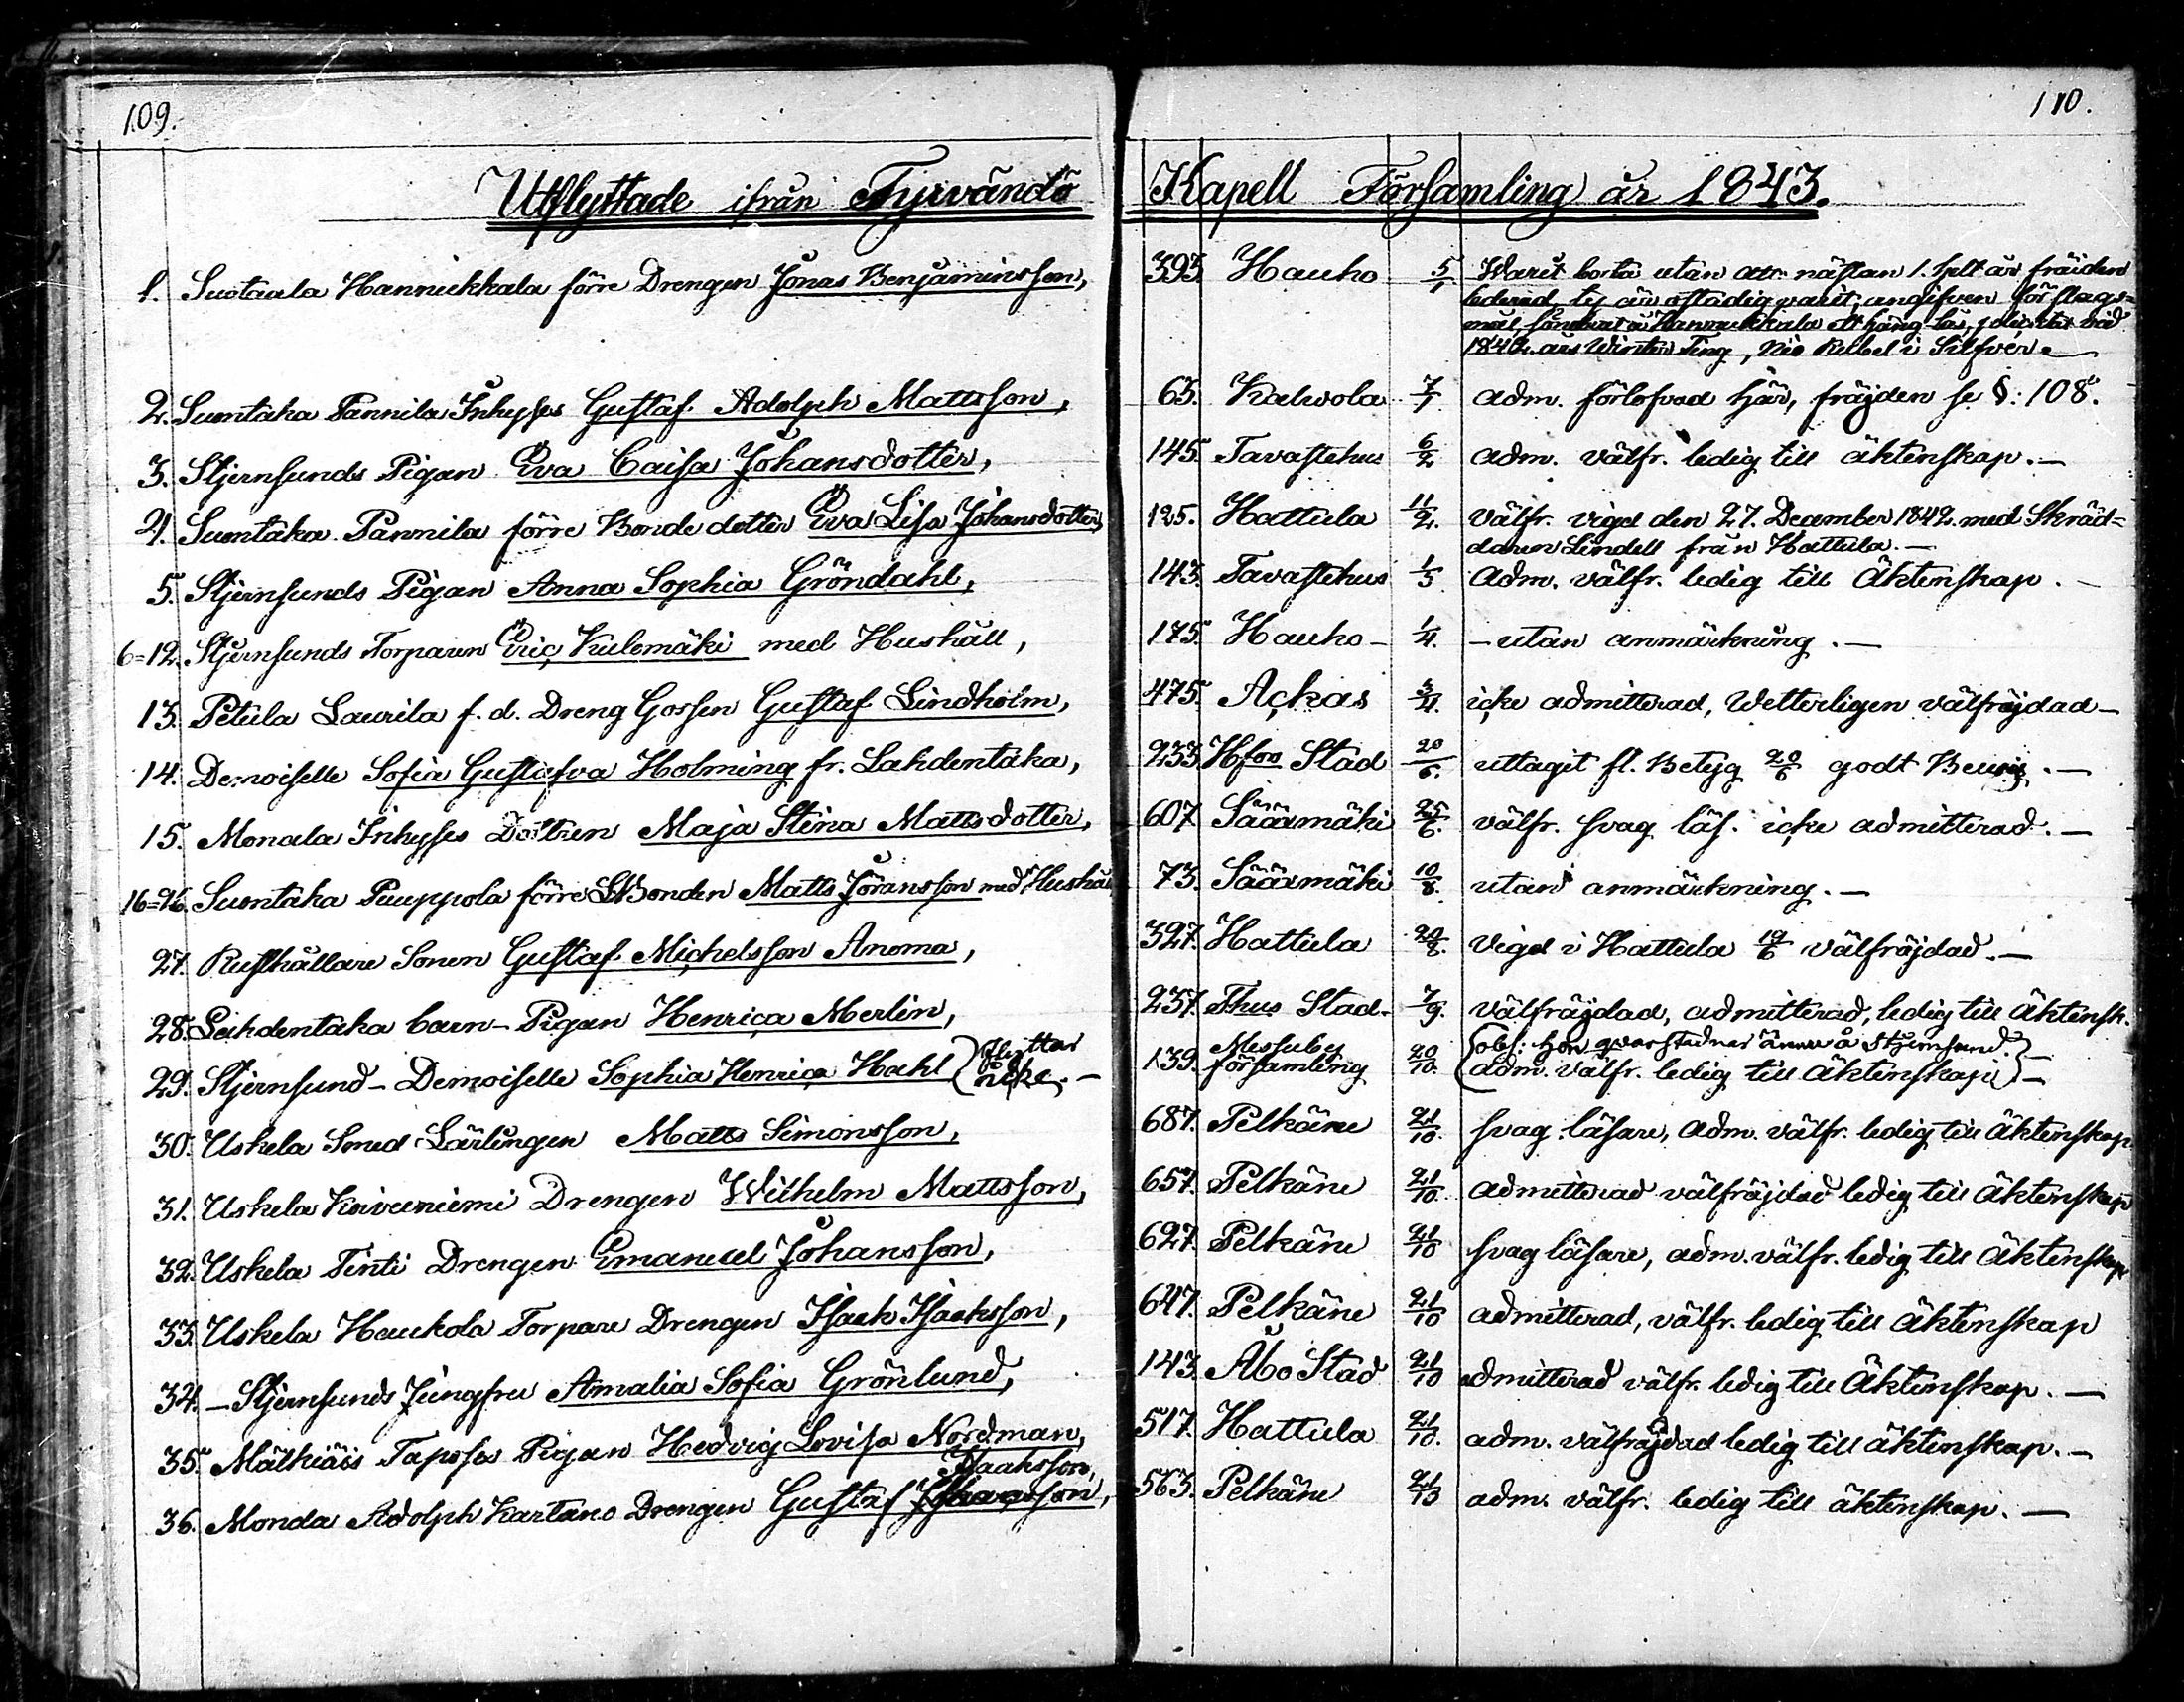 109.
110.
Utflyttade ifrån Tyrvändö Kapell Församling år 1843.
1. Suotaala Hannukkala förre Drengen Jonas Benjaminsson, 393 Hauho 5/1 Warit borta utan att: nästan 1. helt år fräjden
lederad, ty är ostadig varit, angifven för slags=
mål, Hannukkala ett häng lås, vid
1842. års Winter Ting, Nio Rubel i Silfver.
2. Suontaka Pannila Inhyses Gustaf Adolph Mattsson, 63. Kalvola 7/1 adm. förlofvad här, fräjden se §: 108.
3. Stjernsunds Pigan Eva Caisa Johansdotter, 145. Tavastehus 6/2 adm. välfr. ledig till äktenskap.—
4. Suontaka Pannila förre Bonde dotter Eva Lisa Johansdotter, 125. Hattula 11/2. välfr. vigd den 27. December 1842. med Skräd=
daren Lindell från Hattula.—
5. Stjernsunds Pigan Anna Sophia Gröndahl, 143. Tavastehus 1/3 Adm. välfr. ledig till Äktenskap.—
6=12. Stjernsunds Torparen Eric Kulomäki med Hushåll, 175. Hauho— 1/4. —utan anmärkning.—
13. Petula Laurila f. d. Dreng Gossen Gustaf Lindholm, 475. Ackas 3/4. icke admitterad, Wetterligen välfräjdad—
14. Demoiselle Sofia Gustafva Holming fr. Lahdentaka, 233. Hfors Stad 20/6. uttagit fl. Betyg 20/6 godt Bewis.—
15. Monala Inhyses Dottren Maja Stina Mattsdotter, 607. Sääxmäki 25/6. välfr. svag läs. icke admitterad.—
16=26. Suontaka Puuppola förre LBonden Matts Jöransson med Hushåll 73. Sääxmäki 10/8. utan anmärkning.—
27. Rusthållare Sonen Gustaf Michelsson Anoma, 327. Hattula 20/8. Vigd i Hattula 19/6 välfräjdad.—
28. Lahdentaka barn-Pigan Henrica Merlin, 237. Thus Stad. 7/9. välfräjdad, admitterad, ledig till Äktensk.
29. Stjernsund—Demoiselle Sophia Henrica Hahl (flyttar icke.— 139. Messuby församling 20/10. (obs: hon qvarstadnar ännu å Stjernsund.)—
(adm. välfr. ledig till Äktenskap)—
30. Uskela Smed Lärlingen Matts Simonsson, 687. Pelkäne 21/10. svag läsare, adm. välfr. ledig till Äktenskap
31. Uskela Koivuniemi Drengen Wilhelm Mattsson, 657. Pelkäne 21/10. admitterad välfräjdad ledig till Äktenskap
32. Uskela Tinti Drengen Emanuel Johansson, 627. Pelkäne 21/10 svag läsare, adm. välfr. ledig till Äktenskap
33. Uskela Haukola Torpare Drengen Isack Isacksson, 647. Pelkäne 21/10 admitterad, välfr. ledig till Äktenskap
34. —Stjernsunds Jungfru Amalia Sofia Grönlund, 143. Åbo Stad 21/10 admitterad välfr. ledig till Äktenskap.—
35. Mälkiäis Tapsses Pigan Hedvig Lovisa Nordman, 517. Hattula 21/10. adm. välfräjdad ledig till äktenskap.—
Isaaksson,
36. Monda Adolph Kartano Drengen Gustaf 563. Pelkäne 21/13 adm. välfr. ledig till äktenskap.—